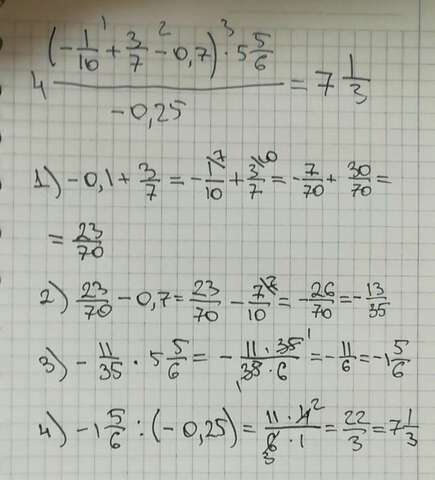 4 ((-1/10 +¹ 3/7 -² 0,7) ·³ 5 5/6) / (-0,25) = 7 1/3
1) -0,1 + 3/7 = - 1/10 ⁷ + 3/7 ¹⁰ = - 7/70 + 30/70 =
= 23/70
2) 23/70 - 0,7 = 23/70 - 7/10 ⁷ = - 26/70 = - 13/35
3) - 11/35 · 5 5/6 = - (11 · 35 ¹)/(₁ 35 · 6) = - 11/6 = -1 5/6
4) -1 5/6 : (-0,25) = (11 · 4 ²)/(6 ₃ · 1) = 22/3 = 7 1/3